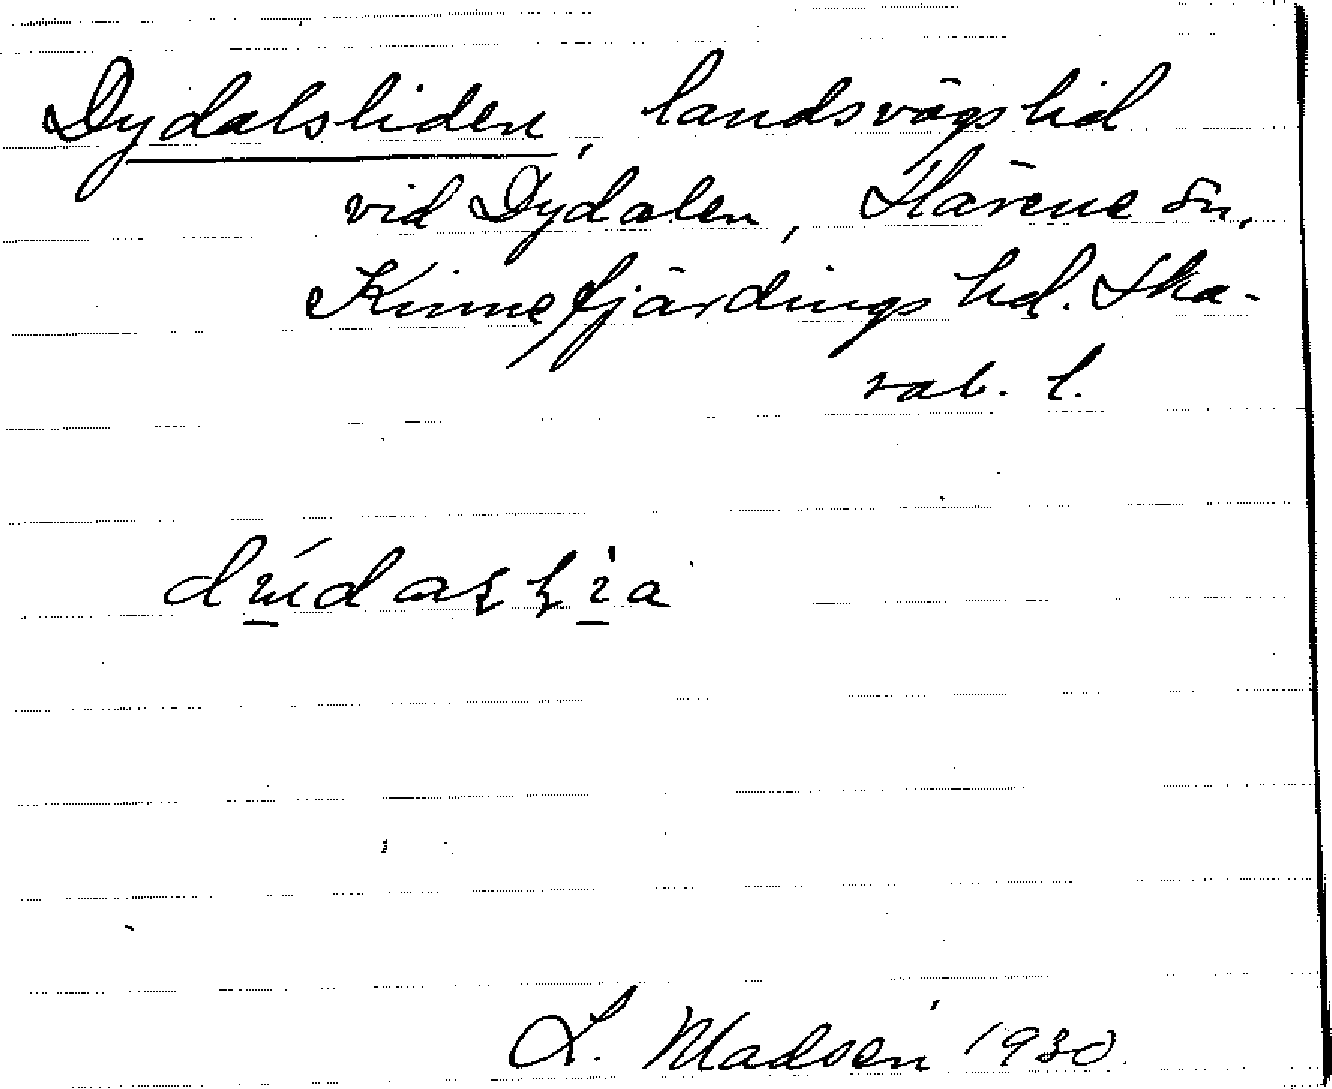 Dydalsliden, landsvägslid
vid Dydalen, Härene sn,
Kinnefjärdings hd. Ska-
rab. l.
L. Madsén 1930